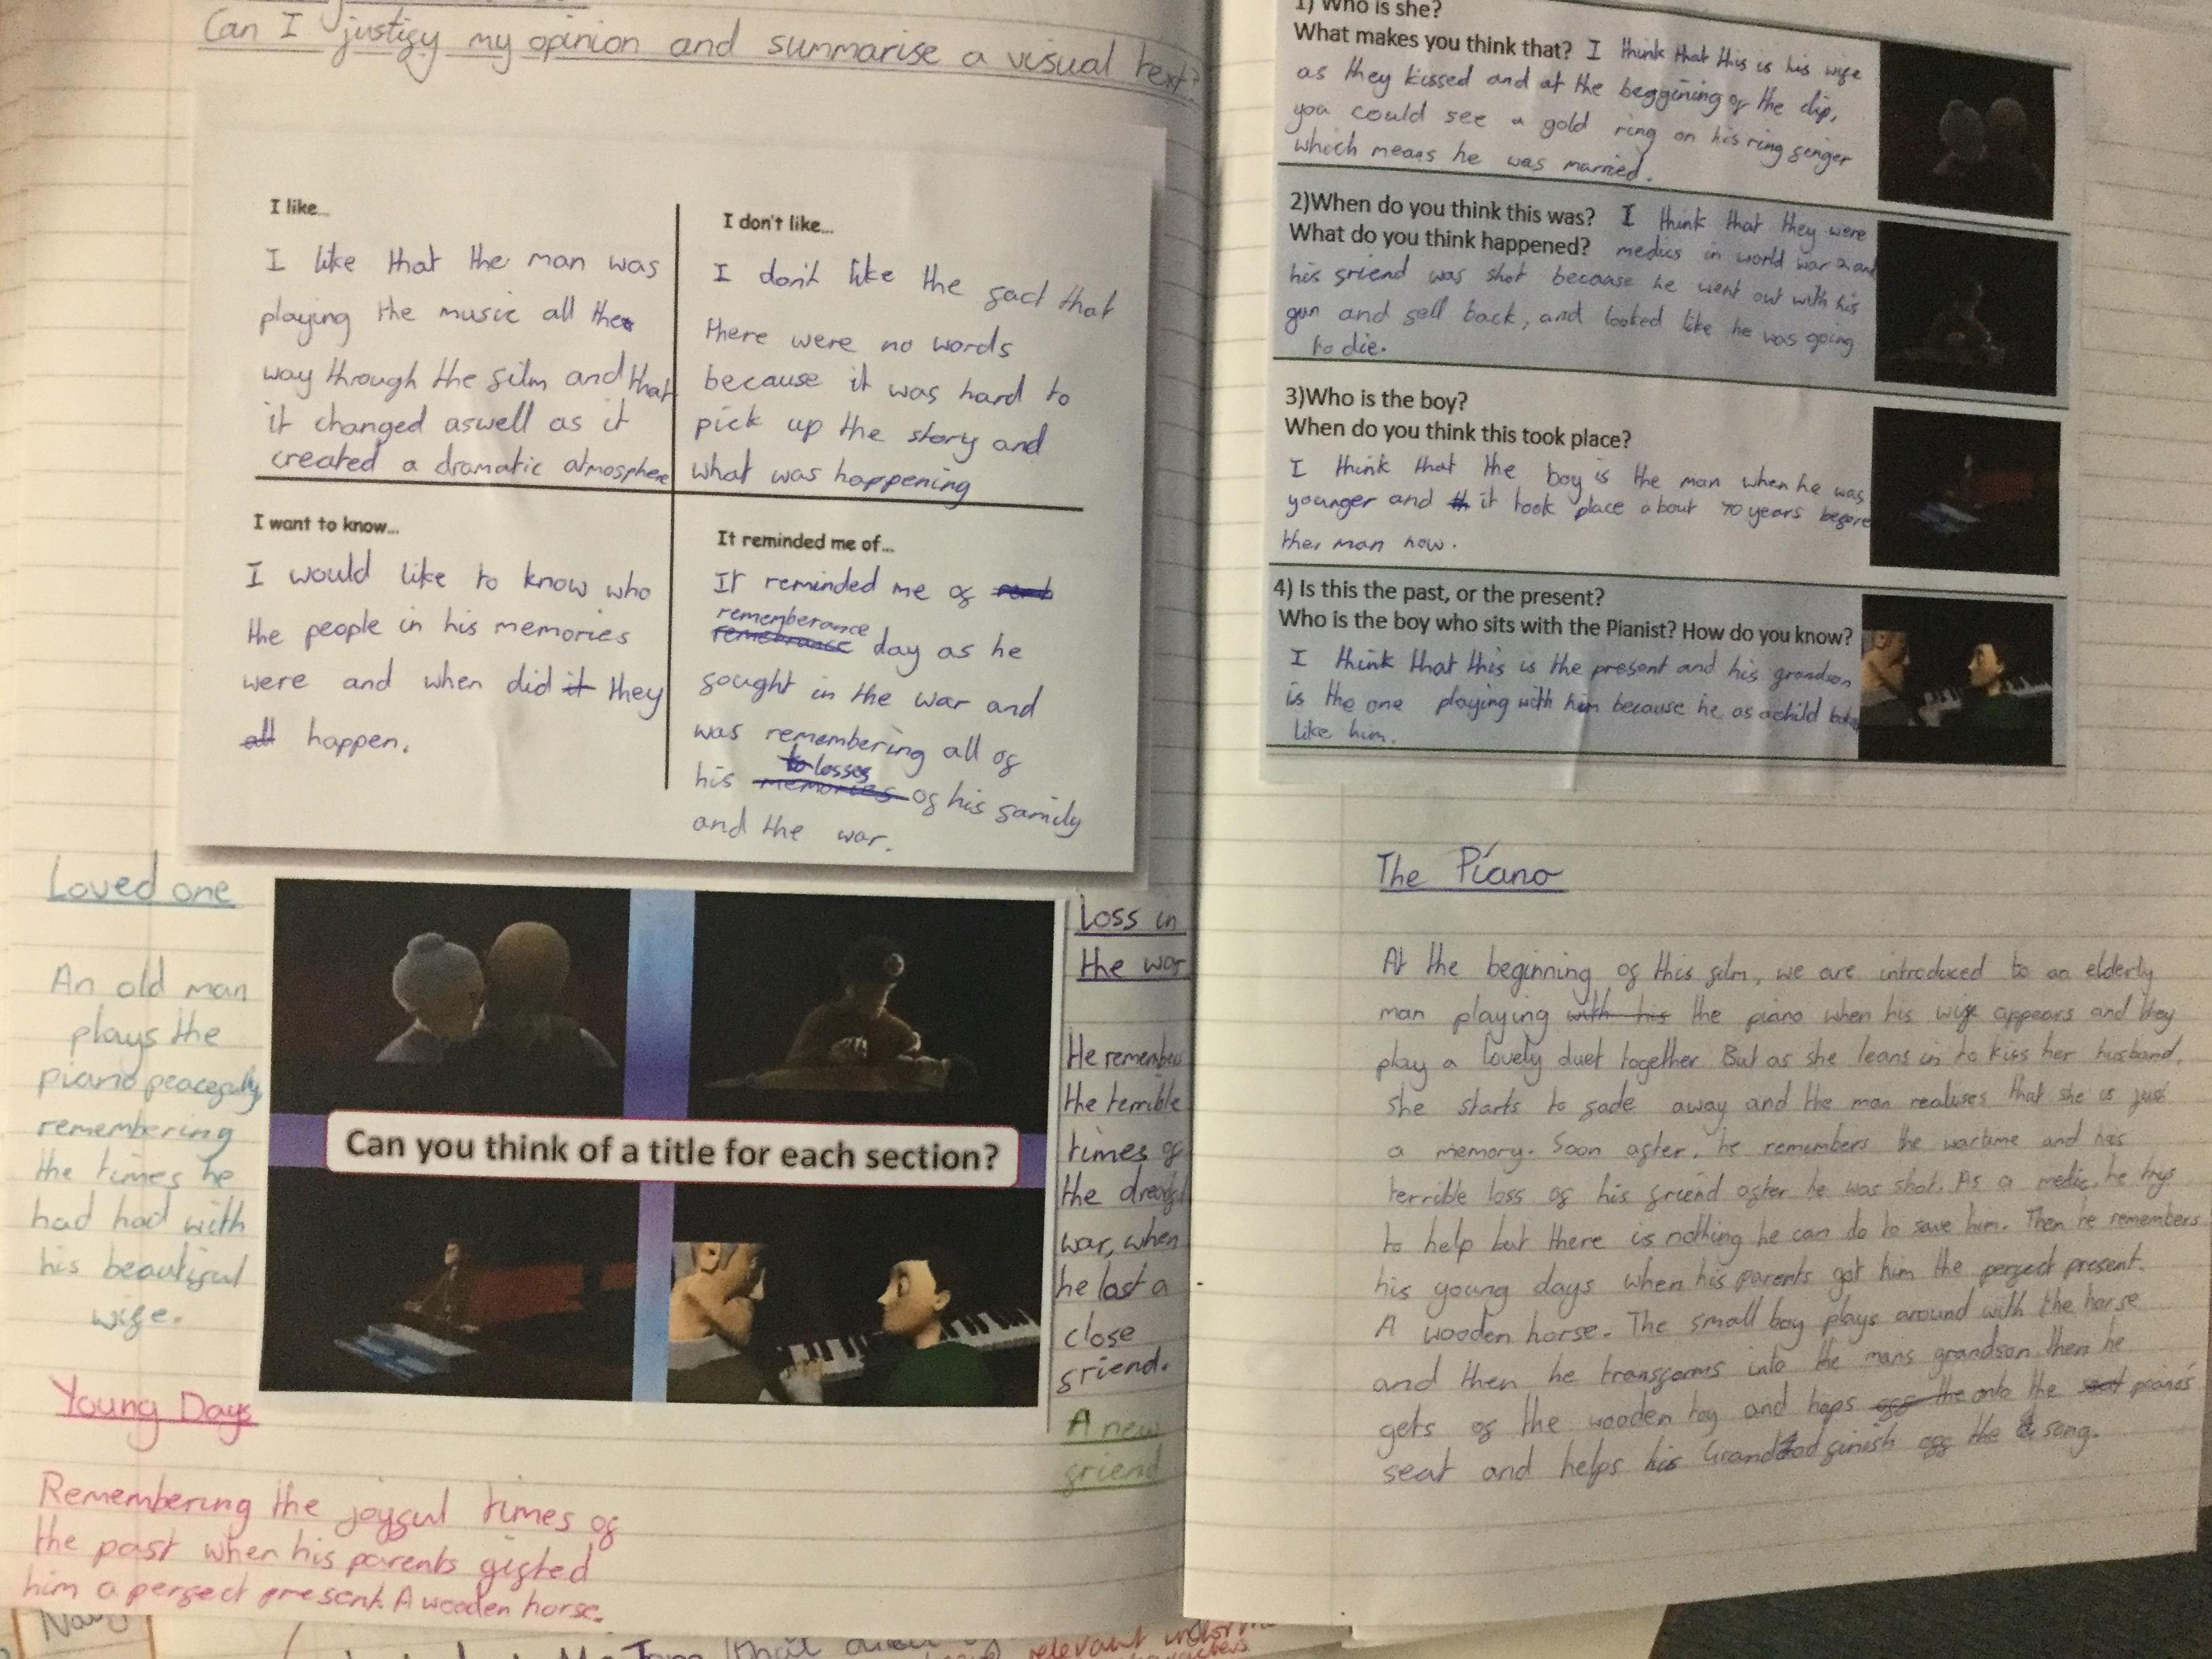 Can I justify my opinion and summarise a visual text?
I like...
I like that the man was
playing the music all the
way through the film and that
it changed aswell as it
created a dramatic atmosphere
I don't like...
I don't like the fact that
there were no words
because it was hard to
pick up the story and
what was happening
I want to know...
I would like to know who
the people in his memories
were and when did it they
all happen.
It reminded me of...
It reminded me of
rememberance
remebrance day as he
fought in the war and
was remembering all of
to losses
his memories of his family
and the war.
Loved one
An old man
plays the
piano peacefully
remembering
the times he
had had with
his beautiful
wife.
Can you think of a title for each section?
Loss in
the war
He remembers
the terrible
times of
the dreadful
war, when
he lost a
close
friend.
Young Days
Remembering the joyful times of
the past when his parents gifted
him a perfect present. A wooden horse.
A new
friend
1) Who is she?
What makes you think that? I think that this is his wife
as they kissed and at the beggining of the clip,
you could see a gold ring on his ring finger
which means he was married.
2)When do you think this was? I think that they were
What do you think happened? medics in world war 2 and
his friend was shot because he went out with his
gun and fell back, and looked like he was going
to die.
3)Who is the boy?
When do you think this took place?
I think that the boy is the man when he was
younger and it took place about 70 years before
the man now.
4) Is this the past, or the present?
Who is the boy who sits with the Pianist? How do you know?
I think that this is the present and his grandson
is the one playing with him because he as a child
like him.
The Piano
At the beginning of this film, we are introduced to an elderly
man playing with his the piano when his wife appears and they
play a lovely duet together. But as she leans in to kiss her husband,
she starts to fade away and the man realises that she is just
a memory. Soon after, he remembers the wartime and his
terrible loss of his friend after he was shot. As a medic, he trys
to help but there is nothing he can do to save him. Then he remembers
his young days when his parents got him the perfect present.
A wooden horse. The small boy plays around with the horse
and then he transforms into the mans grandson then he
gets of the wooden toy and hops off the onto the seat pianos
seat and helps his Grandad finish off the song.
relevant